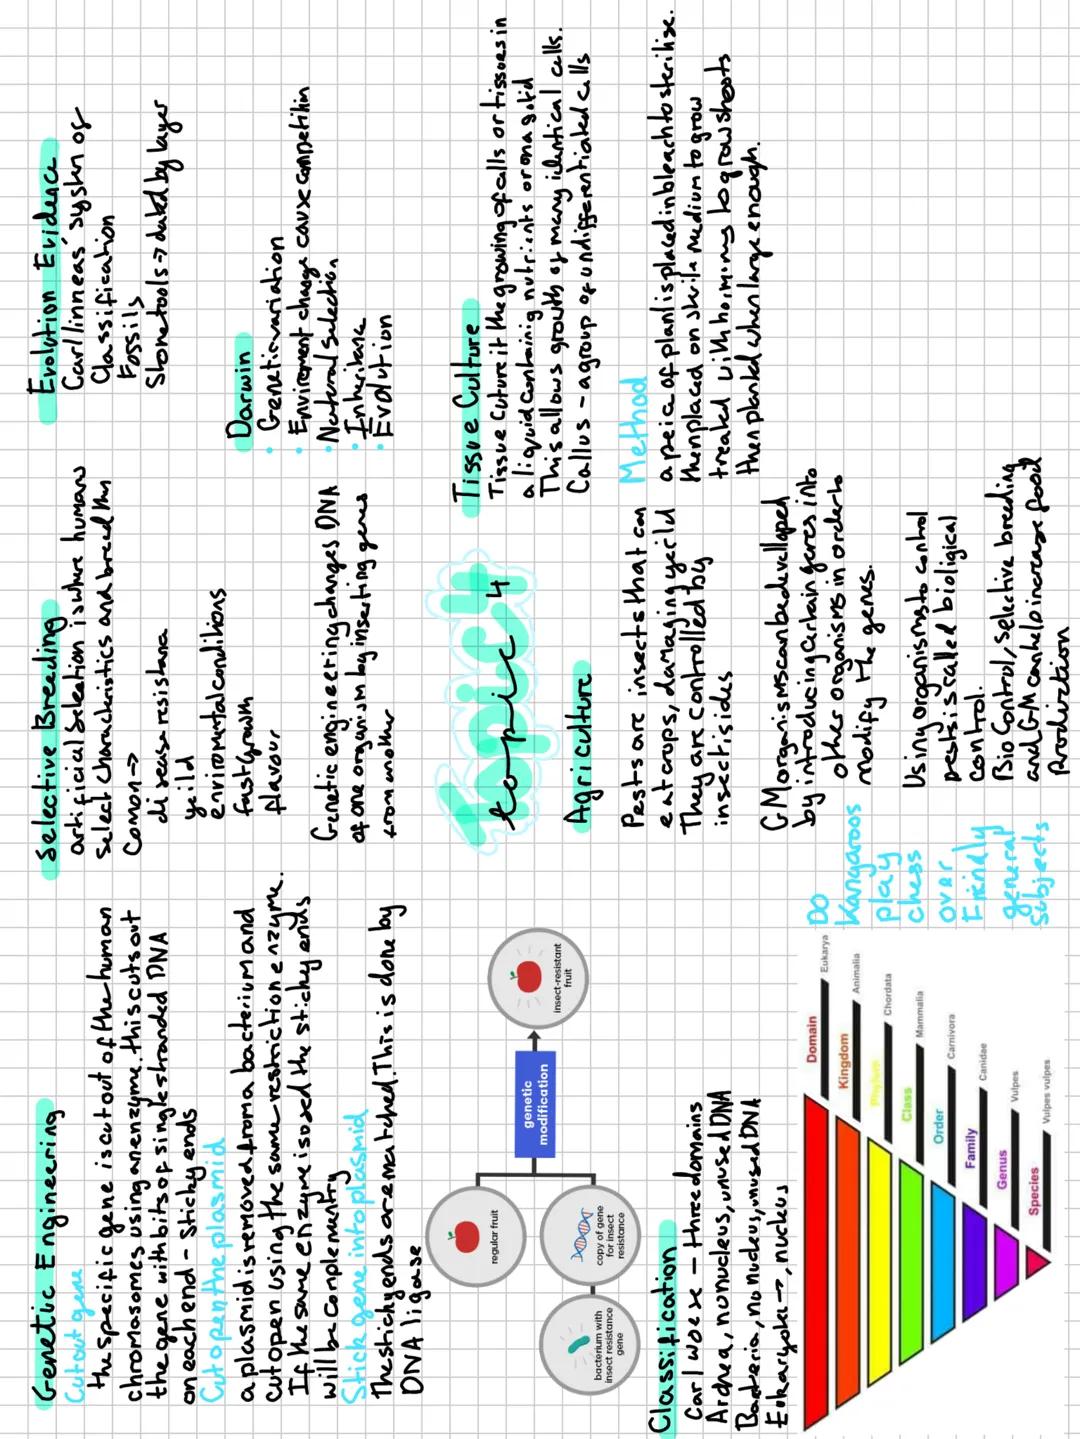 Genetic Engineering
Cut out gene
the specific gene is cut out of the human
chromosomes using an enzyme. this cuts out
the gene with bits of single stranded DNA
on each end - Sticky ends
Cut open the plasmid
a plasmid is removed from a bacterium and
cut open using the same restriction enzyme.
If the same enzyme is used the sticky ends
will be complementry
Stick gene into plasmid
The stichy ends are matched. This is done by
DNA ligase
regular fruit
bacterium with
insect resistance
gene
copy of gene
for insect
resistance
genetic
modification
insect-resistant
fruit
Classification
Carl woese - three domains
Archea, no nucleus, unused DNA
Bacteria, no nucleus, unused DNA
Eukaryotes ->, nucleus
Domain
Eukarya
Kingdom
Animalia
Phylum
Chordata
Class
Mammalia
Order
Carnivora
Family
Canidae
Genus
Vulpes
Species
Vulpes vulpes
Do
Kangaroos
play
chess
over
Friendly
general
subjects
Selective Breeding
artificial Selection is where humans
select characteristics and breed them
Comon ->
disease resistance
yeild
enviromental conditions
fast growth
flavour
Genetic engineering changes DNA
of one organism by inserting genes
from another
Topic 4
topic 4
Agriculture
Pests are insects that can
eat crops, damaging yeild
They are controlled by
insectisides
GM organisms can be devellopped
by introducing certain genes into
other organisms in order to
modify the genes.
Using organisms to control
pests is called bioligical
control.
Bio Control, selective breeding
and GM can help increase food
Production
Evolution Evidence
Carl linneas' system of
Classification
Fossils
Stone tools -> dated by layer
Darwin
• Genetic variation
• Enviroment change cause competition
• Natural selection
• Inheritance
• Evolution
Tissue Culture
Tissue Cuture it the growing of cells or tissues in
a liquid containing nutrients or on a solid
This allows growth of many identical cells.
Callus - a group of undifferentiated cells
Method
a peice of plant is placed in bleach to sterilise.
then placed on sterile medium to grow
treated with hormones to grow shoots
then planted when large enough.